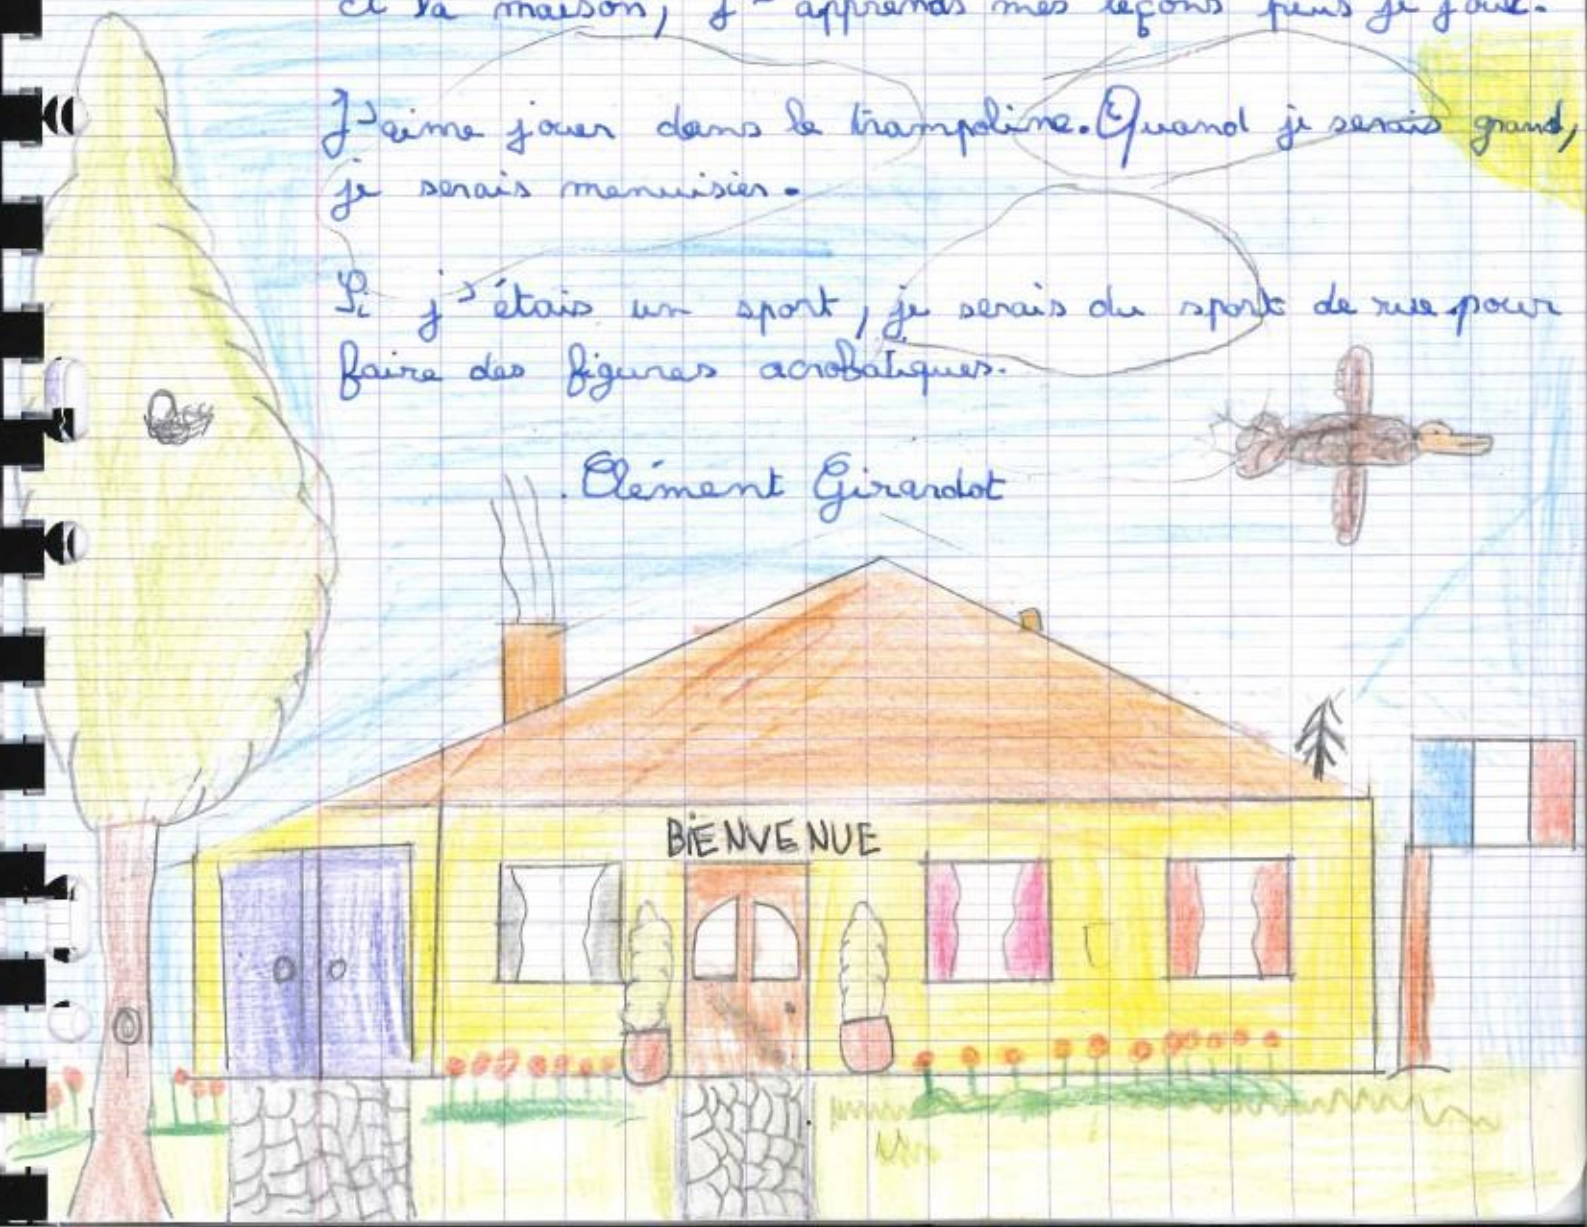 A la maison, j'apprends mes leçons puis je joue.
J'aime jouer dans le trampoline. Quand je serais grand,
je serais menuisier.
Si j'étais un sport, je serais du sport de rue pour
faire des figures acrobatiques.
Clément Girardot
BIENVENUE